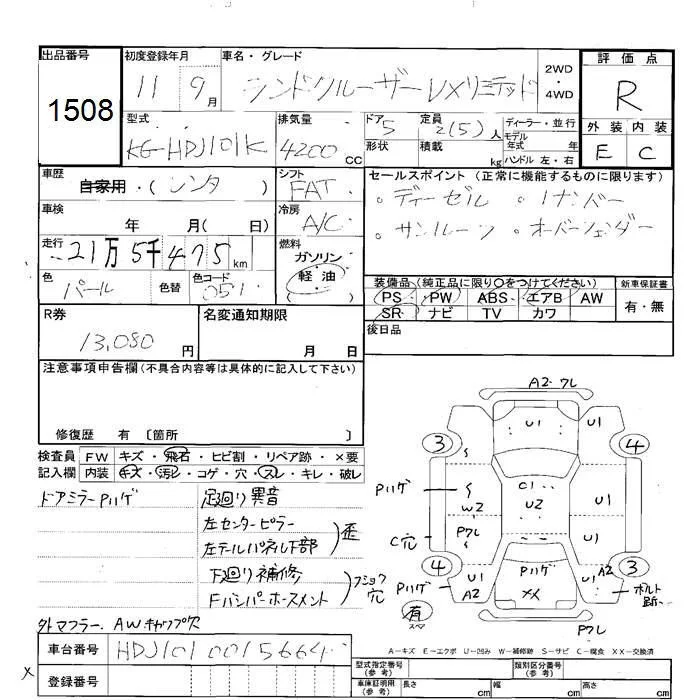 出品番号
1508
初度登録年月
11 9月
車名・グレード
ランドクルーザー VXリミテッド
2WD
4WD
評価点
R
外装 内装
E C
型式
KG-HDJ101K
排気量
4200 CC
ドア 5
形状
定員 2(5)人
積載 kg
ディーラー・並行
モデル年式 年
ハンドル 左・右
車歴
自家用・(レンタ )
シフト
FAT
セールスポイント (正常に機能するものに限ります)
。ディーゼル 。1ナンバー
。サンルーフ 。オーバーフェンダー
車検
年 月( 日)
冷房
A/C
走行
21万5千475km
燃料
ガソリン
軽油
色
パール
色替
色コード
051
装備品 (純正品に限り〇をつけてください)
新車保証書
PS PW ABS エアB AW
SR ナビ TV カワ
有・無
後日品
R券
13,080円
名変通知期限
月 日
注意事項申告欄(不具合内容等は具体的に記入して下さい)
修復歴 有 〔箇所 〕
検査員 FW キズ・飛石・ヒビ割・リペア跡・×要
記入欄 内装 キズ・汚レ・コゲ・穴・スレ・キレ・破レ
ドアミラーPハゲ
足廻り異音
左センターピラー
左テールパネル下部
歪
下廻り補修
Fバンパーホースメント
フショク穴
外マフラー. AWキャップ欠
車台番号
HDJ101 0015664
登録番号
A2 フレ
U1 U1
3 4
Pハゲ
C1
W2 U2 U1
C穴
Pフレ
U1
4 3
Pハゲ
U1 A2
Pハゲ
××
U1 A2
ボルト跡
有
スペア
Pフレ
A-キズ E-エクボ U-凹み W-補修跡 S-サビ C-腐食 XX-交換済
型式指定番号(参考)
類別区分番号(参考)
車庫証明用(参考) 長さ cm 幅 cm 高さ cm
X